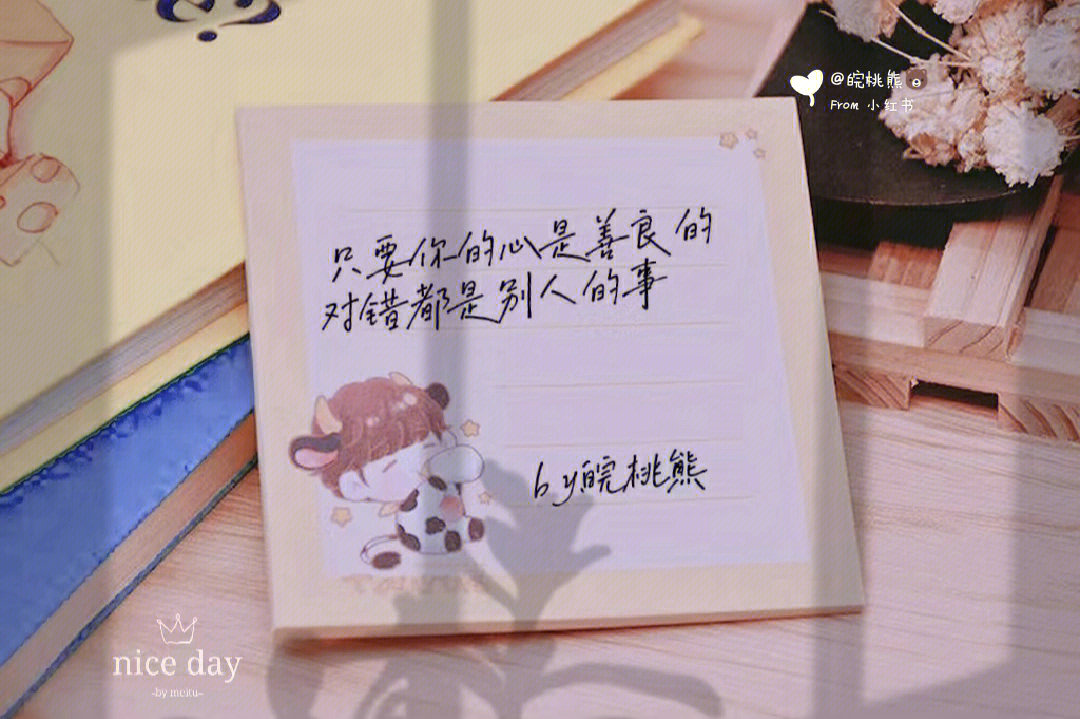 @皖桃熊
From 小红书
只要你的心是善良的
对错都是别人的事
by皖桃熊
nice day
-by meitu-